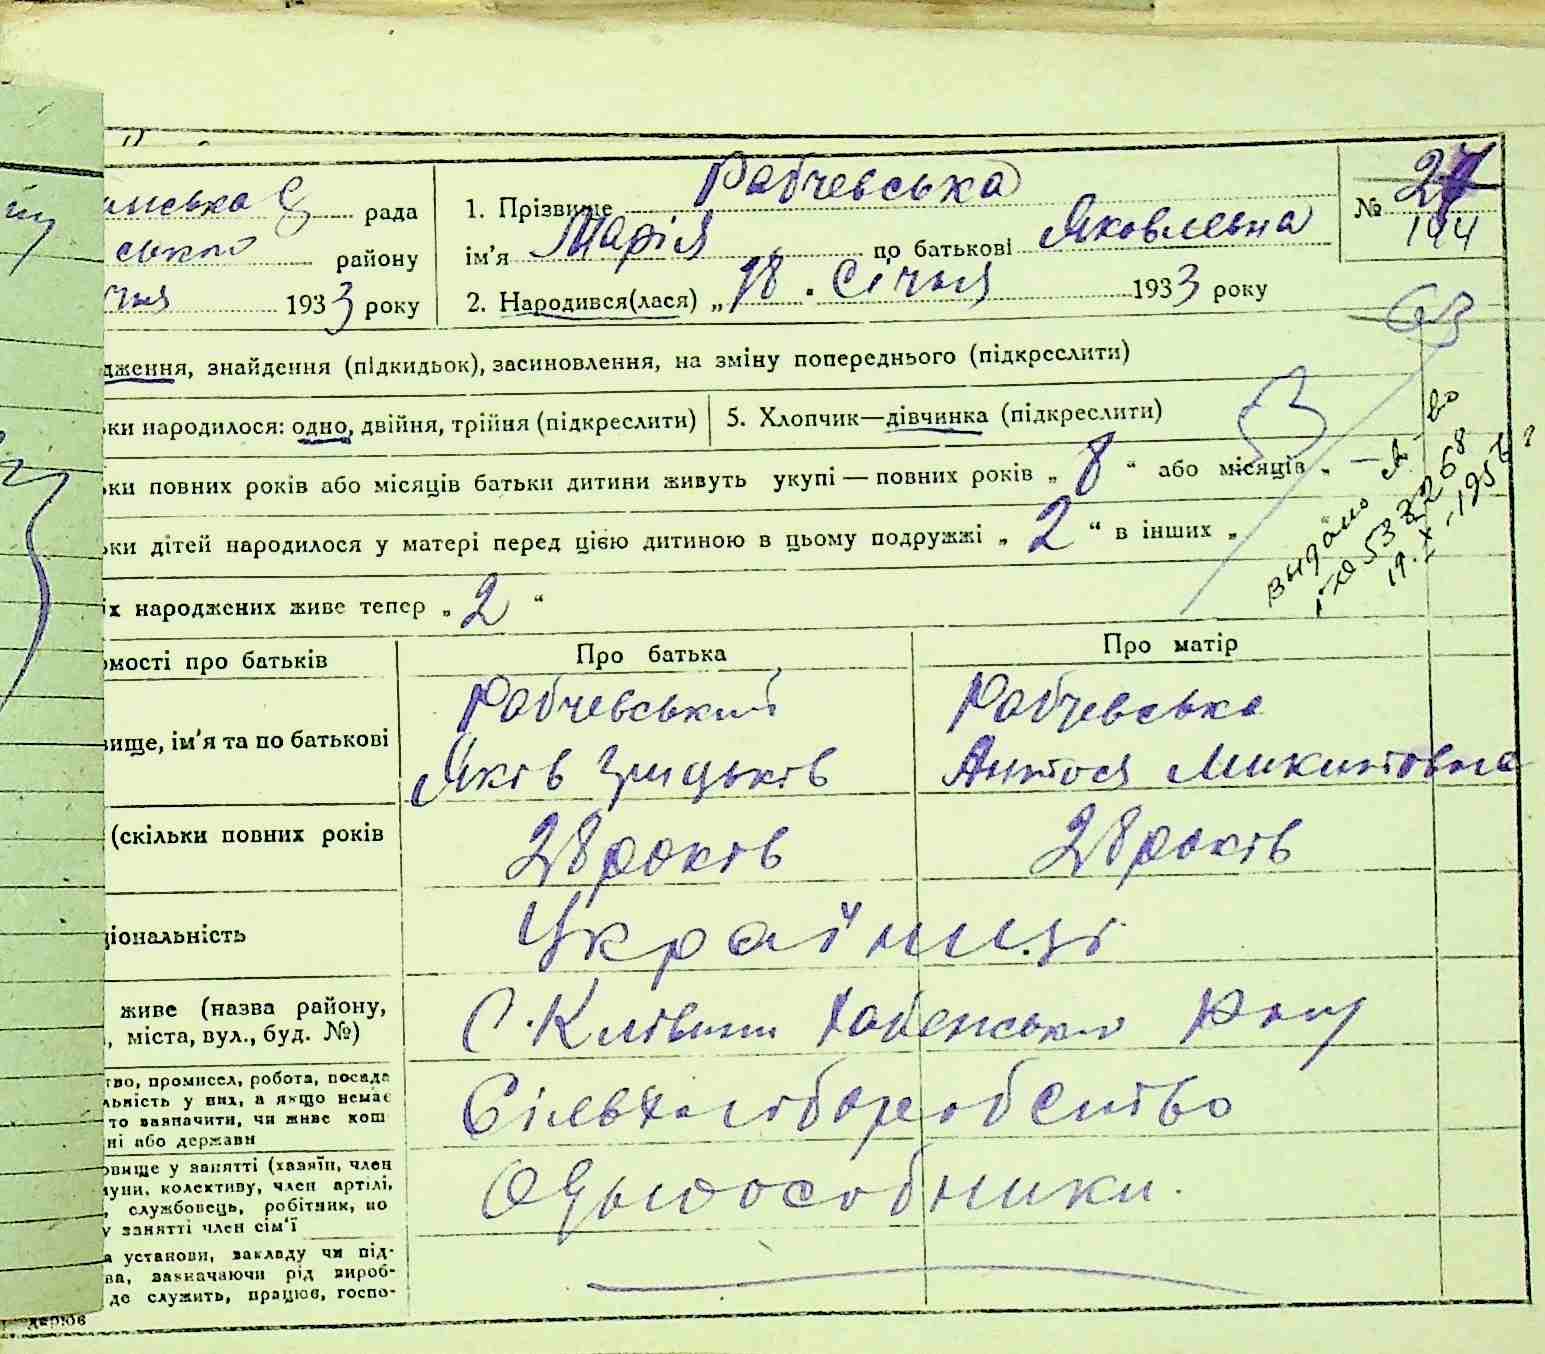 рада
1. Прізвище Рабчевська
№ 27
144
району
ім'я Марія по батькові Яковлевна
1933 року
2. Народився(лася) „18. Січня 1933 року
63
дження, знайдення (підкидьок), засиновлення, на зміну попереднього (підкреслити)
ьки народилося: одно, двійня, трійня (підкреслити)
5. Хлопчик—дівчинка (підкреслити)
ьки повних років або місяців батьки дитини живуть укупі — повних років „ 8 “ або місяців „ —
ьки дітей народилося у матері перед цією дитиною в цьому подружжі „ 2 “ в інших „
їх народжених живе тепер „ 2 “
выдано
19.X.-195
омості про батьків
Про батька
Про матір
вище, ім'я та по батькові
Рабчевський
Яків Грицьків
Рабчевська
Антося Микитовна
(скільки повних років
28 років
28 років
ціональність
Українці
живе (назва району,
, міста, вул., буд. №)
С.
тво, промисел, робота, посада
льність у них, а якщо немає
то зазначити, чи живе кош
ні або держави
Сільхліборобство
овище у занятті (хазяїн, член
муни, колективу, член артілі,
, службовець, робітник, по
у занятті член сім'ї
Одноособники.
а установи, закладу чи під-
ва, зазначаючи рід вироб-
де служить, працює, госпо-
дарює